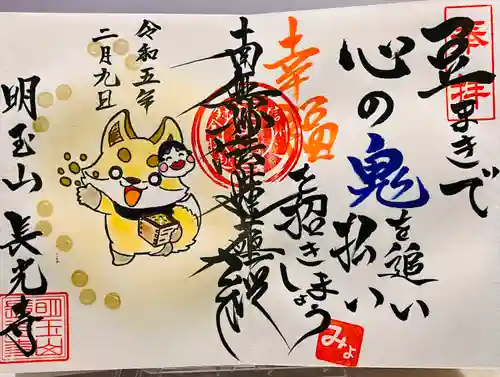 奉拝
豆まきで
心の鬼を追い
払い
幸福
を招きしょう
みょ
南無妙法蓮華経
令和五年
二月九日
明玉山 長光寺